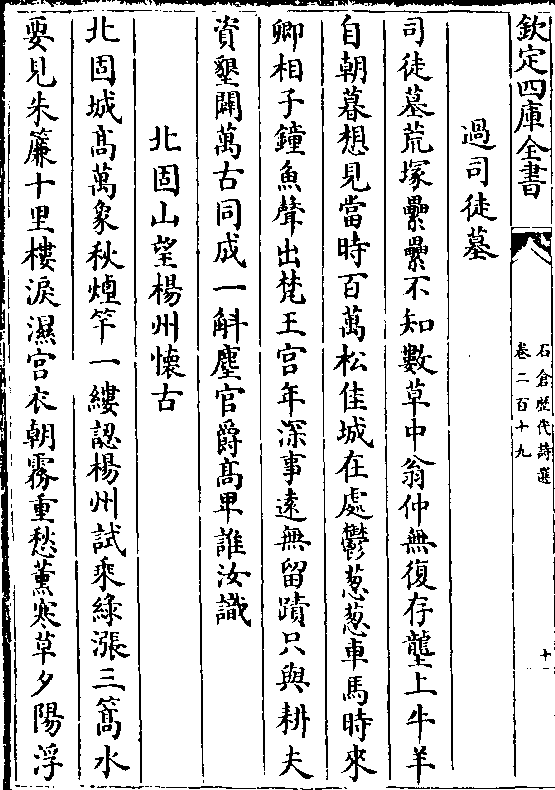 欽定四庫全書
石倉歷代詩選
卷二百十九
十
過司徒墓
司徒墓荒塚纍纍不知數草中翁仲無復存壟上牛羊
自朝暮想見當時百萬松佳城在處鬱葱葱車馬時來
卿相子鐘魚聲出梵王宫年深事遠無留蹟只與耕夫
資墾闢萬古同成一斛塵官爵髙卑誰汝識
北固山望楊州懐古
北固城髙萬象秋煙竿一縷認楊州試乘綠漲三篙水
要見朱簾十里樓淚濕宫衣朝霧重愁薰寒草夕陽浮